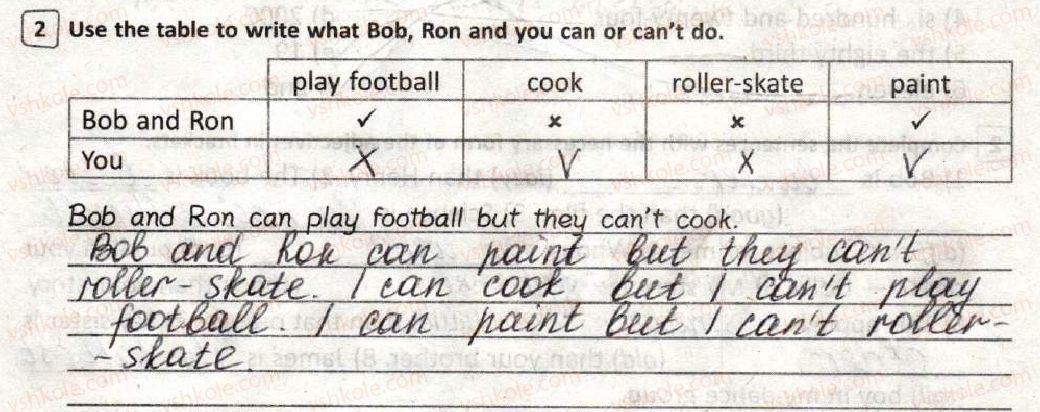 2 Use the table to write what Bob, Ron and you can or can't do.
play football cook roller-skate paint
Bob and Ron ✓ × × ✓
You X V X V
Bob and Ron can play football but they can't cook.
Bob and Ron can paint but they can't
roller-skate. I can cook but I can't play
football. I can paint but I can't roller-
-skate.